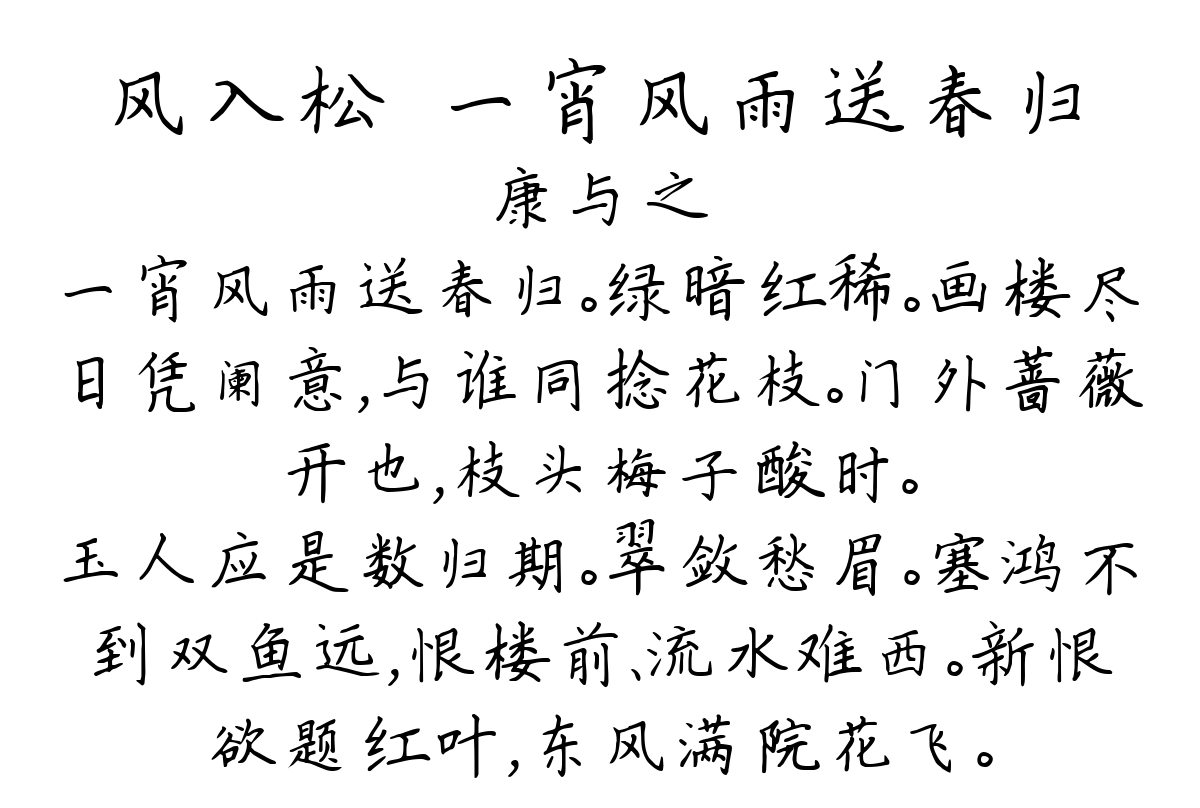 风入松 一宵风雨送春归
康与之
一宵风雨送春归。绿暗红稀。画楼尽
日凭阑意,与谁同捻花枝。门外蔷薇
开也,枝头梅子酸时。
玉人应是数归期。翠敛愁眉。塞鸿不
到双鱼远,恨楼前、流水难西。新恨
欲题红叶,东风满院花飞。